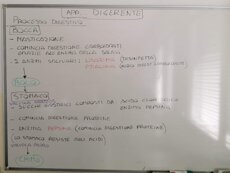 APP. DIGERENTE
PROCESSO DIGESTIVO
BOCCA
- MASTICAZIONE
- COMINCIA DIGESTIONE CARBOIDRATI
GRAZIE AGLI ENZIMI DELLA SALIVA
2 ENZIMI SALIVARI
(DISINFETTA)
BOLO
STOMACO
SUCCHI GASTRICI COMPOSTI DA ACIDO
ENZIMI PEPSINA
- COMINCIA DIGESTIONE PROTEINE
- ENZIMA PEPSINA (COMINCIA DIGESTIONE PROTEINE)
(LO STOMACO RESISTE AGLI ACIDI)
CHIMO